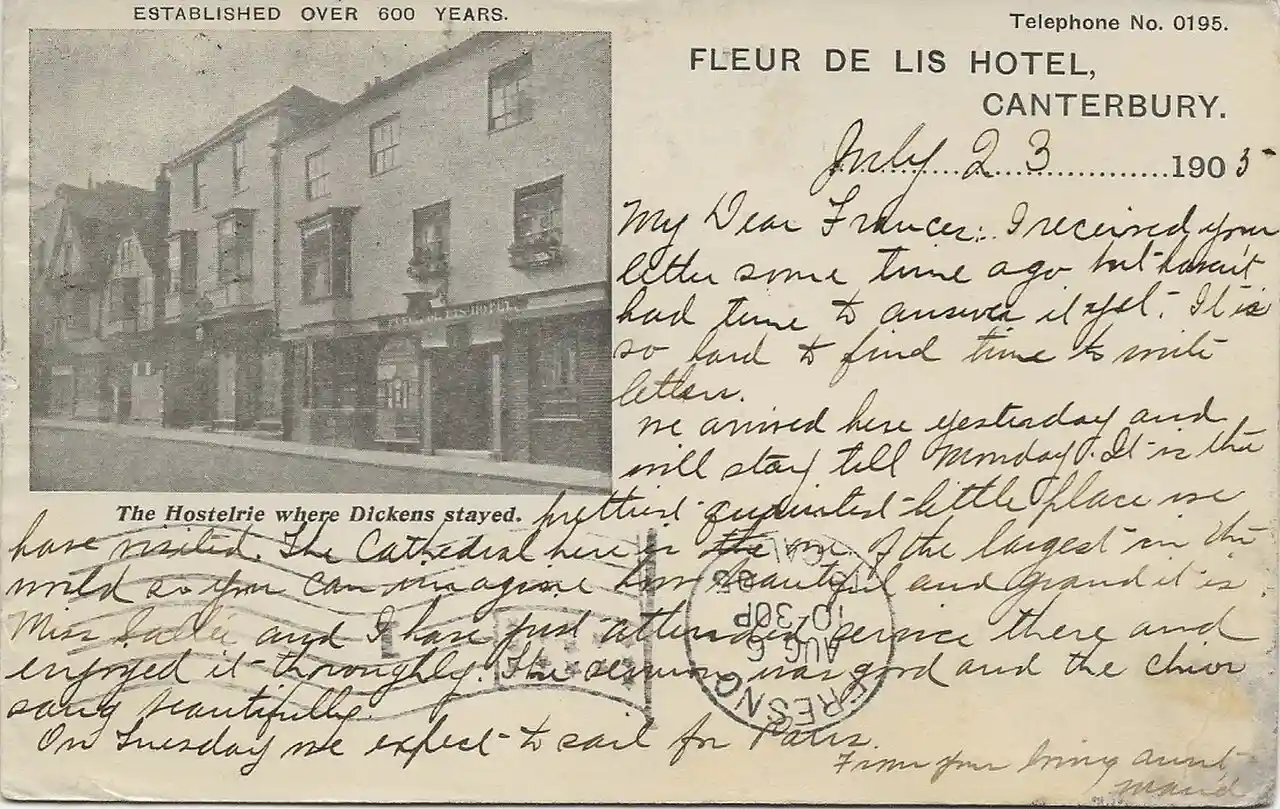 ESTABLISHED OVER 600 YEARS.
Telephone No. 0195.
FLEUR DE LIS HOTEL,
CANTERBURY.
July 23 1905
My Dear Frances: I received your
letter some time ago but haven't
had time to answer it yet. It is
so hard to find time to write
letters.
We arrived here yesterday and
will stay till Monday. It is the
FLEUR DE LIS HOTEL
The Hostelrie where Dickens stayed.
prettiest quaintest little place we
have visited. The Cathedral here is the one of the largest in the
world so you can imagine how beautiful and grand it is.
Miss Sallie and I have just attended service there and
enjoyed it throughly. The sermon was good and the choir
sang beautifully.
On Tuesday we expect to sail for Paris.
From your loving aunt
Maud
FRESNO
CAL.
AUG 6
10-30P
1